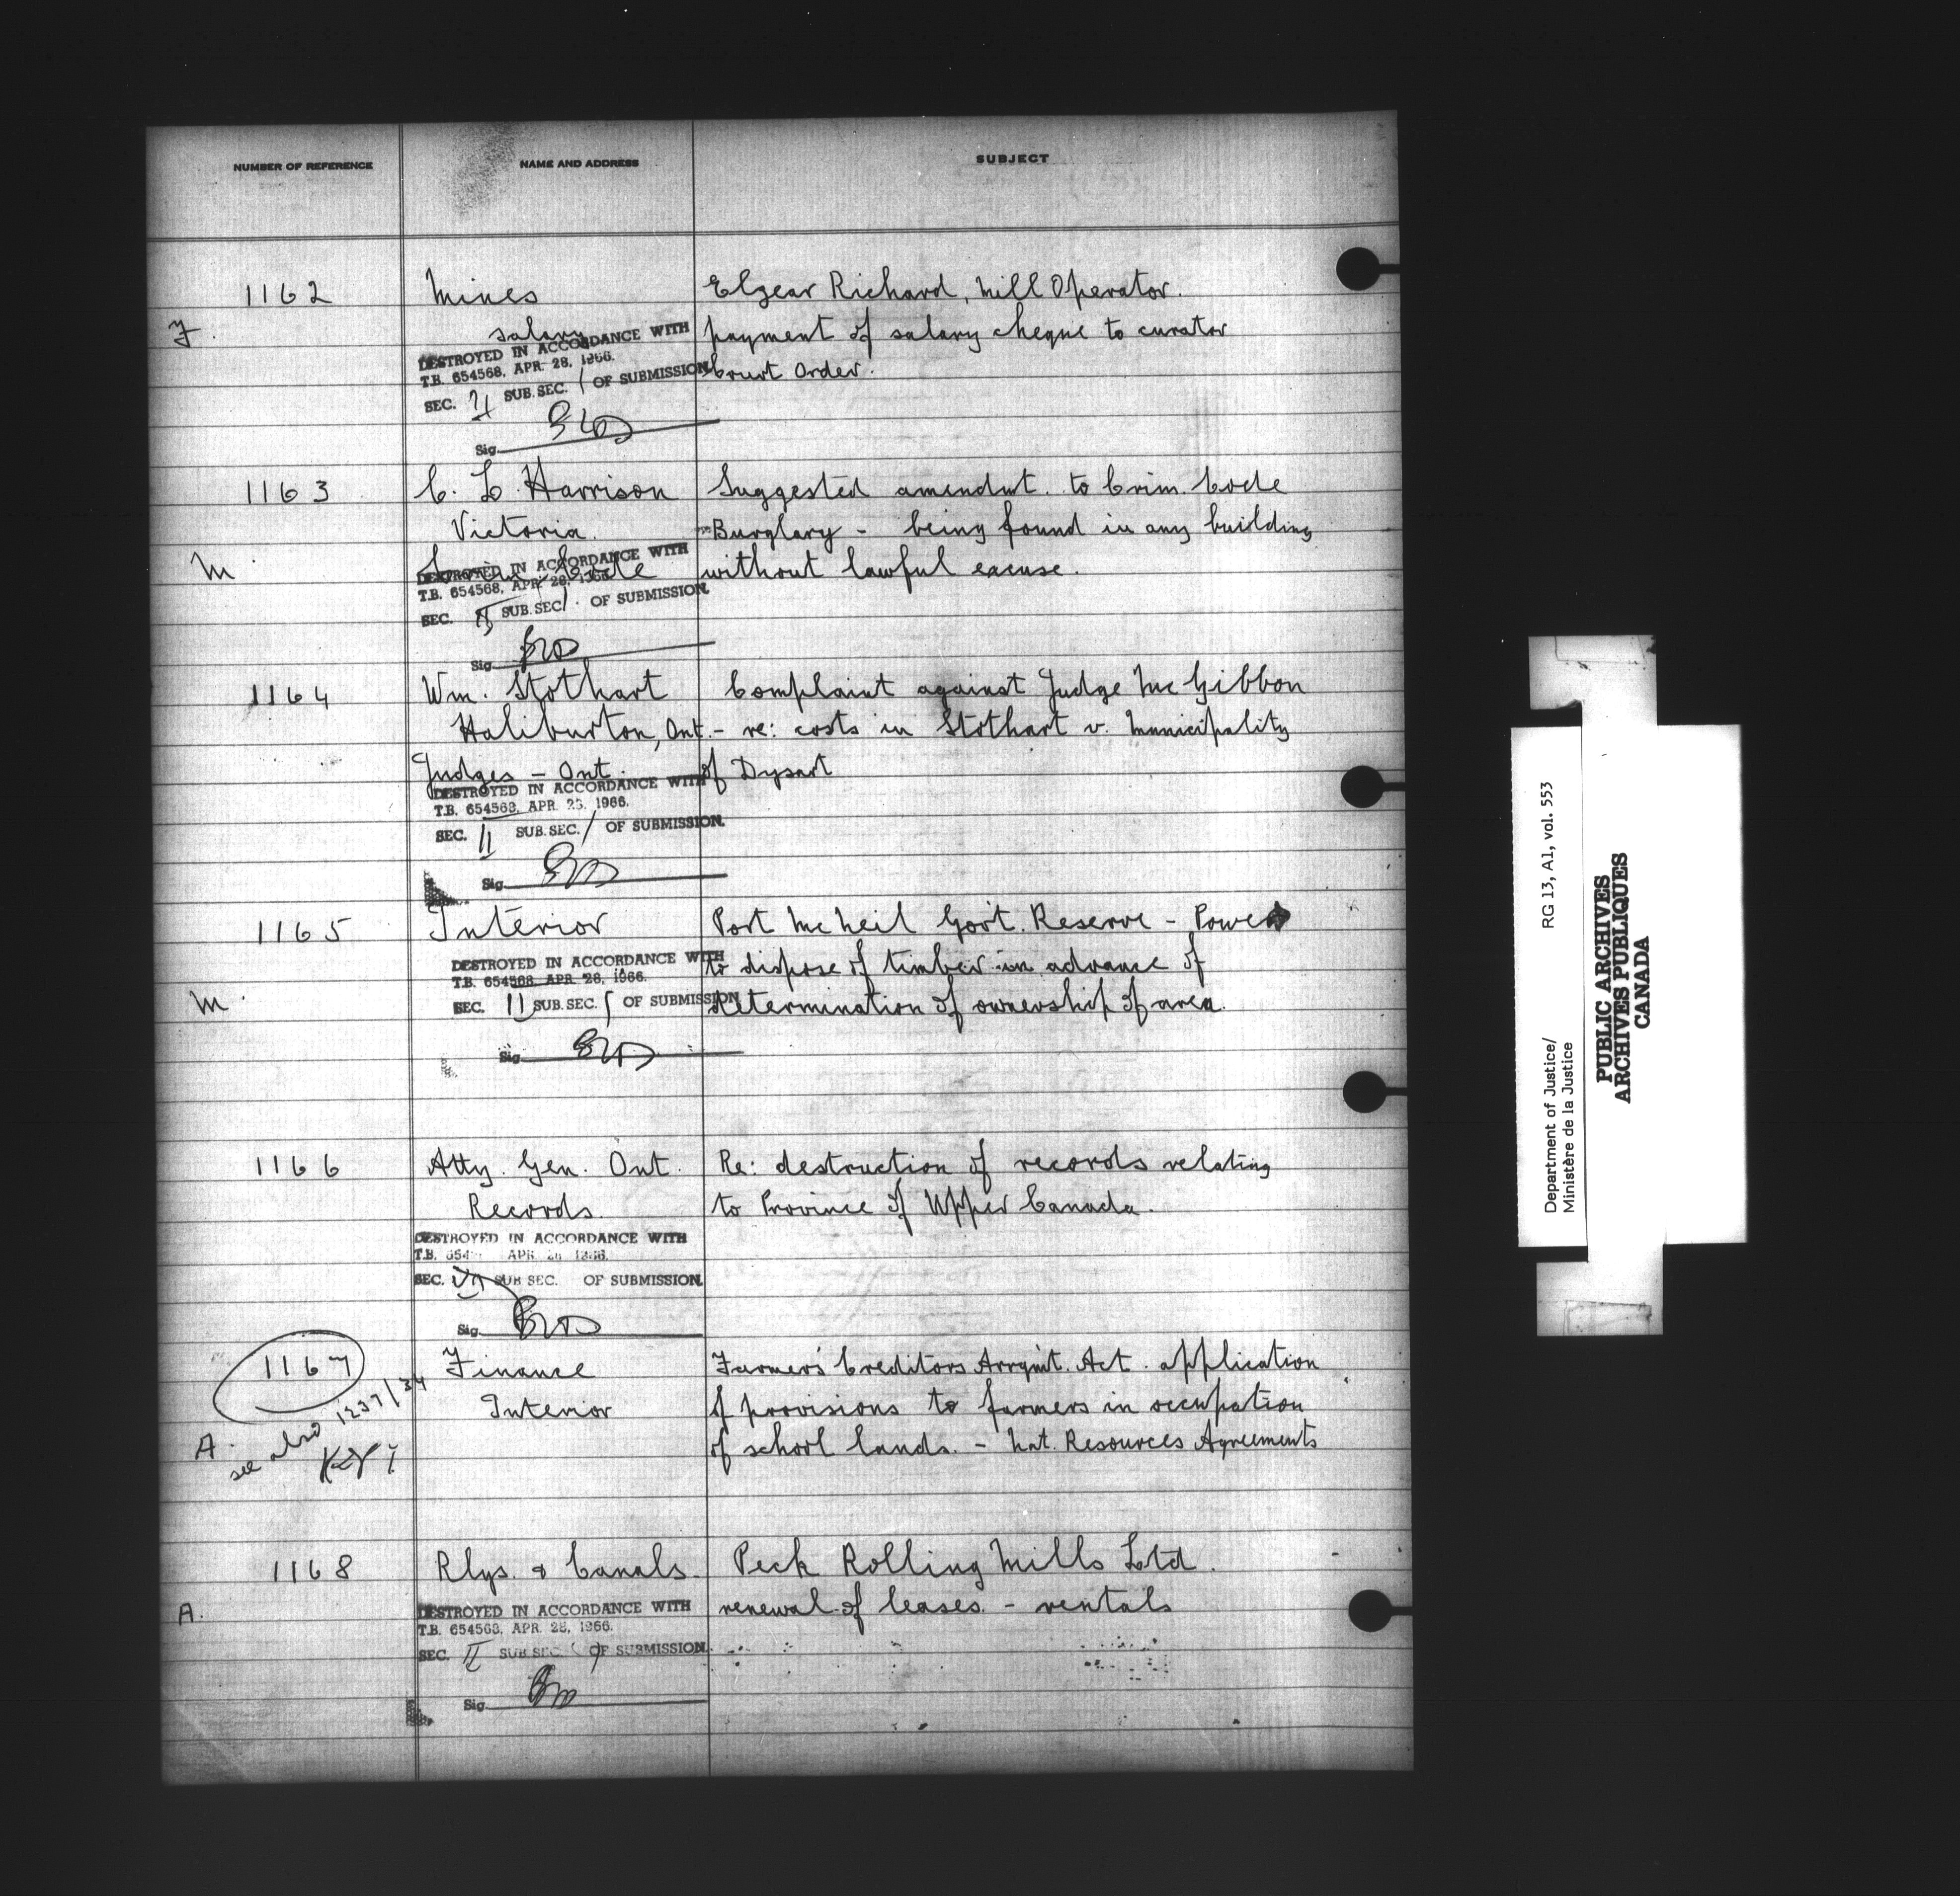 NUMBER OF REFERENCE NAME AND ADDRESS SUBJECT
1162 Mines Elzear Richard, Mill Operator.
F. salary payment of salary cheque to curator
Court Order.
DESTROYED IN ACCORDANCE WITH
T.B. 654568, APR. 28, 1966.
SEC. II SUB. SEC. 1 OF SUBMISSION
Sig.
1163 C. L. Harrison Suggested amendmt. to Crim. Code
Victoria. - Burglary - being found in any building
M. Crim. Code without lawful excuse.
DESTROYED IN ACCORDANCE WITH
T.B. 654568, APR. 28, 1966.
SEC. SUB. SEC. 1 OF SUBMISSION.
Sig.
1164 Wm. Stothart Complaint against Judge McGibbon
Haliburton, Ont. - re: costs in Stothart v. Municipality
Judges - Ont. of Dysart
DESTROYED IN ACCORDANCE WITH
T.B. 654568, APR. 28, 1966.
SEC. II SUB. SEC. 1 OF SUBMISSION.
Sig.
1165 Interior Port McNeil Gov't. Reserve - Power
to dispose of timber in advance of
M. determination of ownership of area.
DESTROYED IN ACCORDANCE WITH
T.B. 654568, APR. 28, 1966.
SEC. II SUB. SEC. 1 OF SUBMISSION
Sig.
1166 Atty. Gen. Ont. Re: destruction of records relating
Records. to Province of Upper Canada.
DESTROYED IN ACCORDANCE WITH
T.B. 654 APR. 28 1966.
SEC. VII SUB SEC. OF SUBMISSION.
Sig.
1167 Finance Farmers' Creditors Arrgmt. Act. application
Interior of provisions to farmers in occupation
A. of school lands. - Nat. Resources Agreements
see also 1237/34
1168 Rlys. & Canals. Peck Rolling Mills Ltd.
A. renewal of leases. - rentals
DESTROYED IN ACCORDANCE WITH
T.B. 654568, APR. 28, 1966.
SEC. II SUB SEC. 1 OF SUBMISSION.
Sig.
Department of Justice/ RG 13, A1, vol. 553
Ministère de la Justice
PUBLIC ARCHIVES
ARCHIVES PUBLIQUES
CANADA